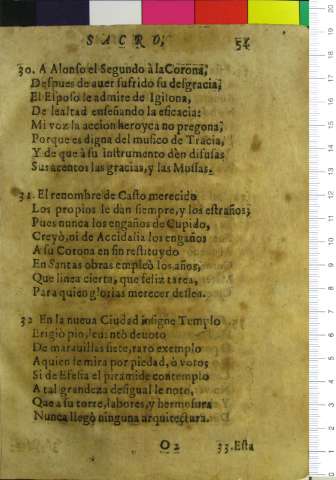 SACRO, 54
30. A Alonso el Segundo à la Corona,
Despues de auer sufrido su desgracia,
El Esposo le admire de Igilona,
De lealtad enseñando la eficacia:
Mi voz la accion heroyca no pregona,
Porque es digna del musico de Tracia,
Y de que à su instrumento den difusas
Sus acentos las gracias, y las Mussas.
31. El renombre de Casto merecido
Los propios le dan siempre, y los estraños,
Pues nunca los engaños de Cupido,
Creyò, ni de Accidalia los engaños
A su Corona en fin restituydo
En Santas obras empleò los años,
Que linea cierta, que feliz tarea,
Para quien glorias merecer dessea.
32 En la nueua Ciudad insigne Templo
Erigiò pio, leuantò deuoto
De marauillas siete, raro exemplo
A quien le mira por piedad, ò voto;
Si de Efesia el piramide contemplo
A tal grandeza desigual le noto,
Que a su torre, labores, y hermosura
Nunca llegò ninguna arquitectura.
O 2 33. Esta